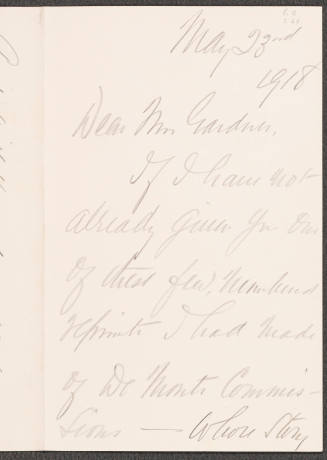 May 23rd
1918
Dear Mrs Gardner,
If I have not
already given you one
of these few, numbered
reprints I had made
of De Monts Commis-
sions — whose story